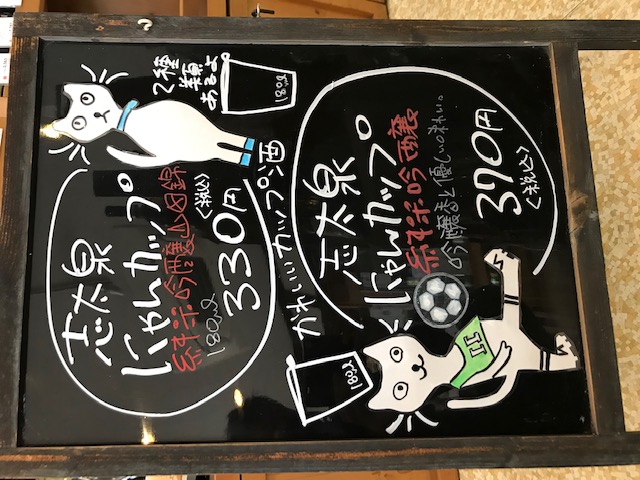 志太泉
にゃんカップ
純米吟醸山田錦
180ml
330円
<税込>
2種
類
あるよ
180ml
かわいいカップ酒
180ml
志太泉
にゃんカップ
純米吟醸
吟醸香と優しい味わい。
370円
<税込>
11